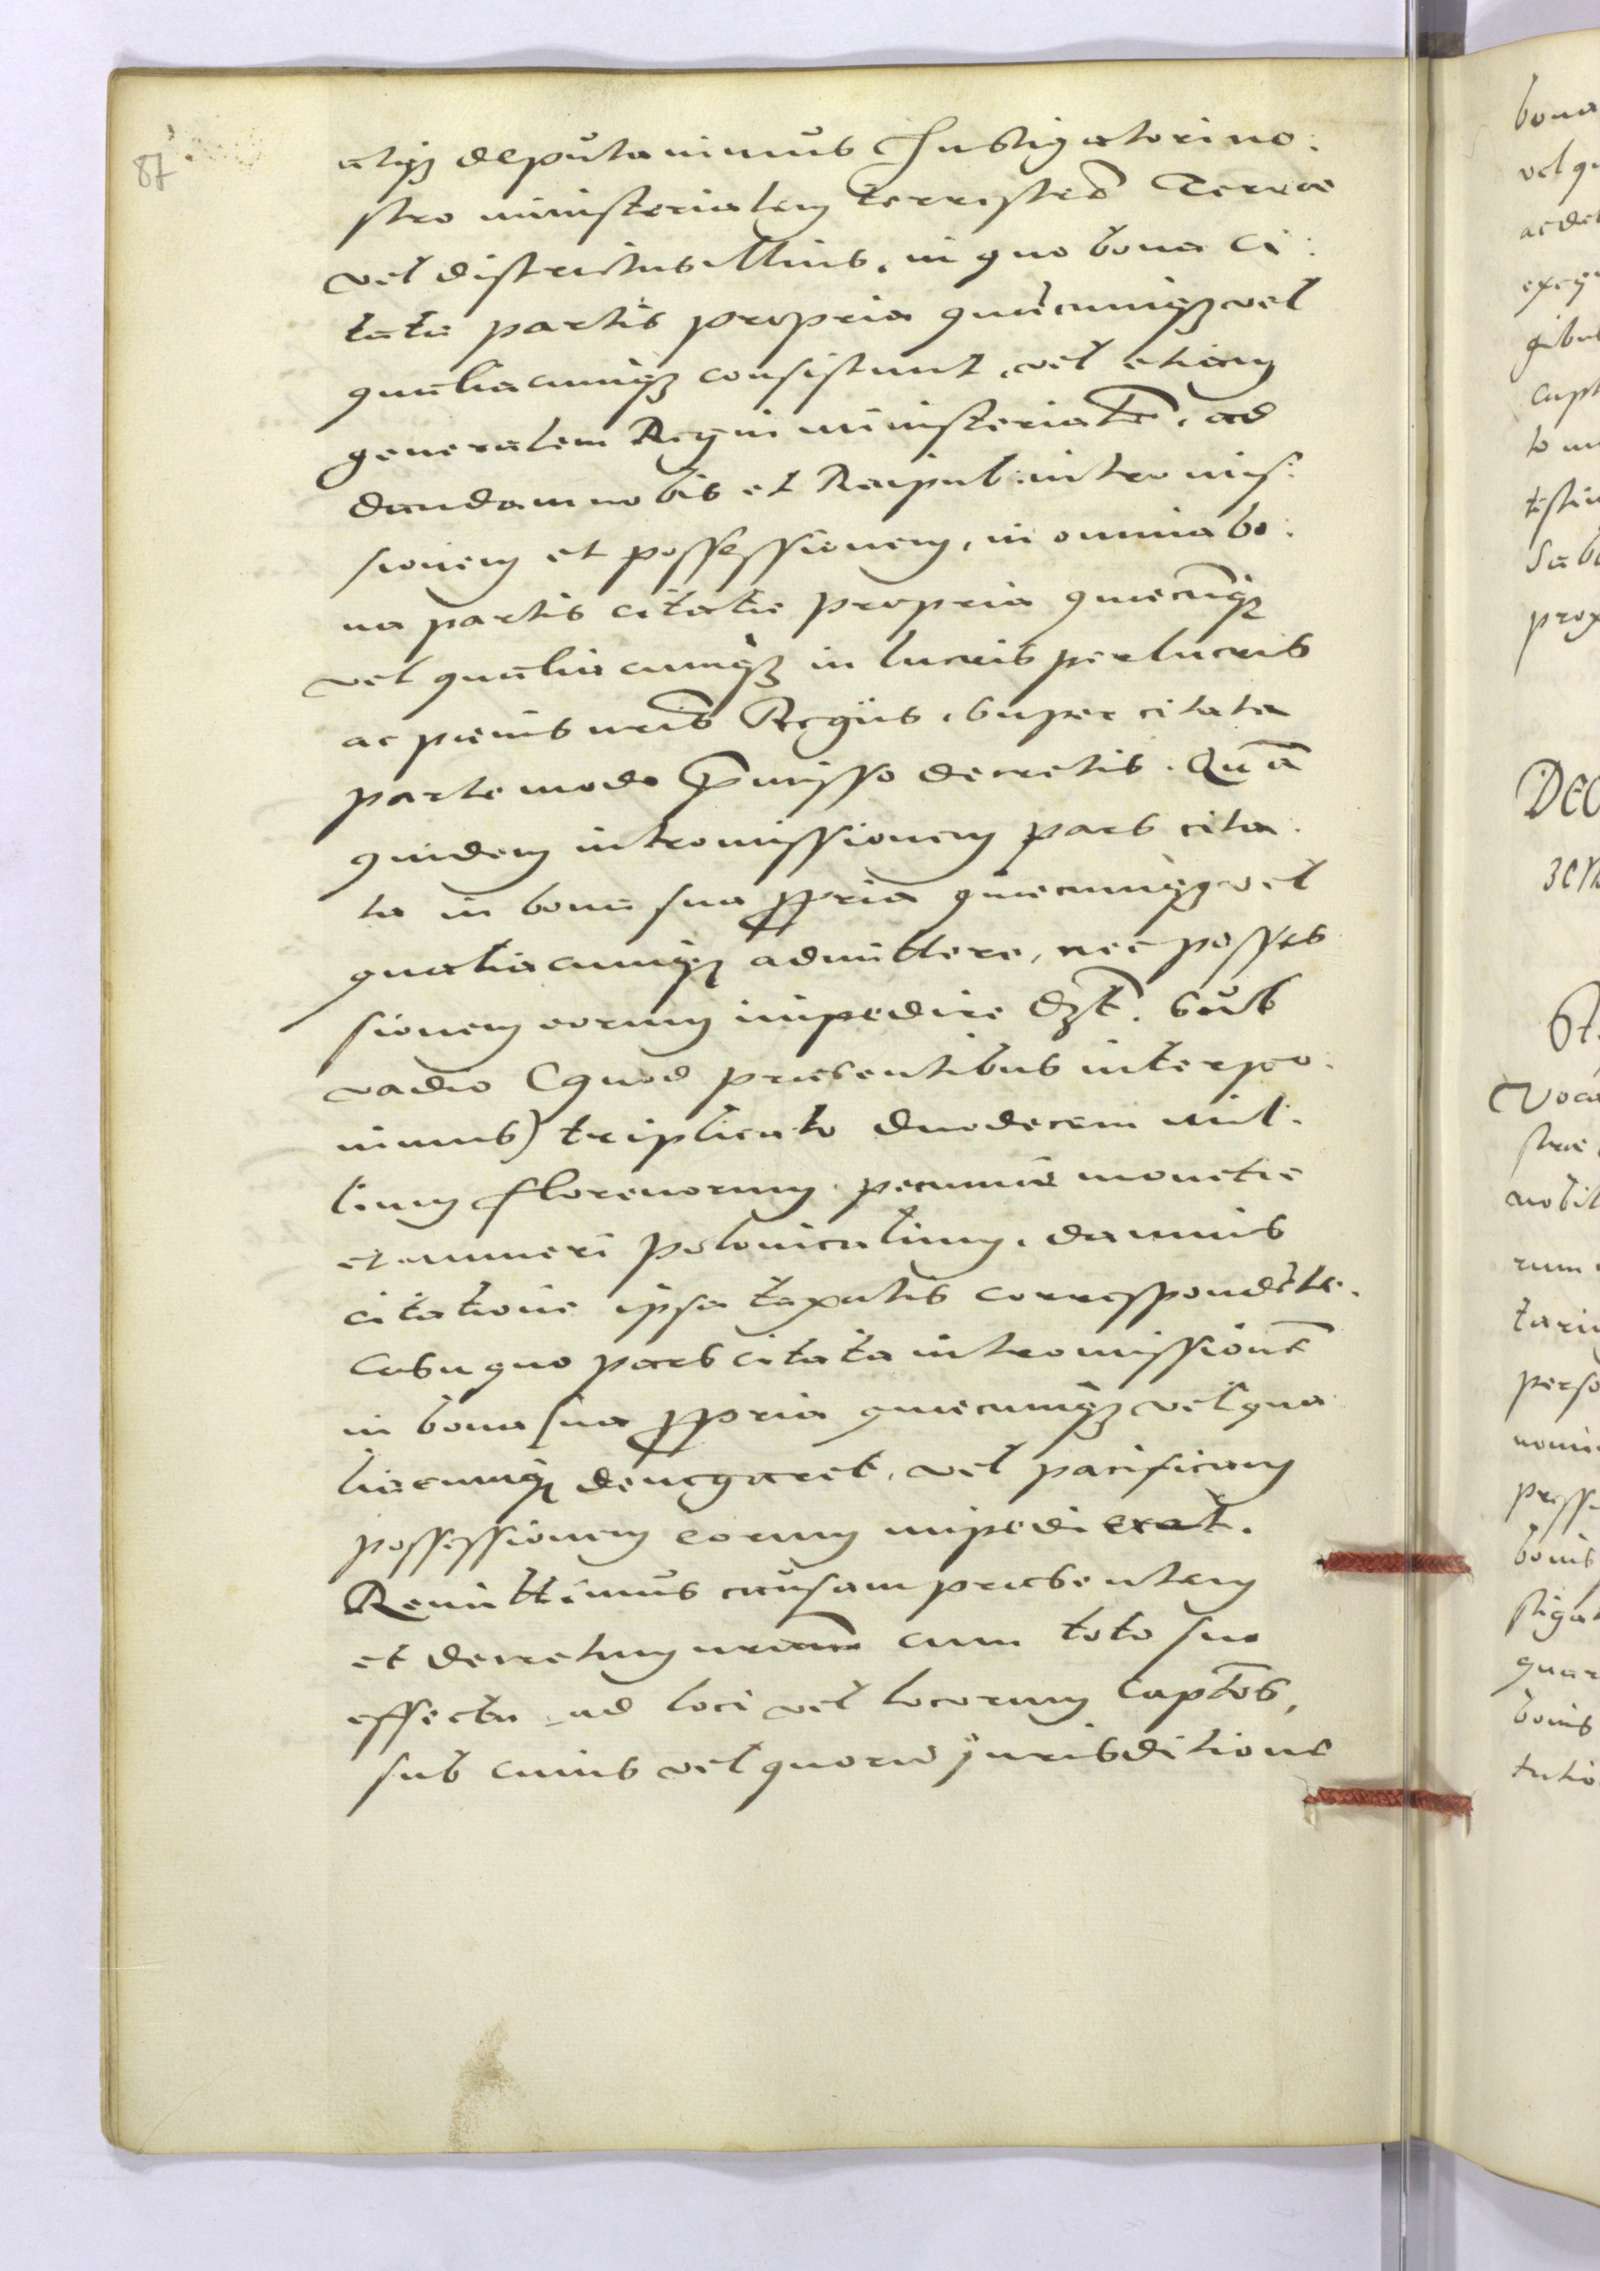 87.
atq; deputavimus Instigatori no:
stro ministerialem terrestrē Terrae
vel districtus illius, in quo bona ci:
tatae partis propria quaecunq; vel
qualiacunq; consistunt, vel etiam
generalem Regni ministerialē, ad
dandam nobis et Reipub: intromis:
sionem et possessionem, in omnia bo:
na partis citatae propria quaecunq;
vel qualiacunq; in lucris perlucris
ac poenis nris Regiis, super citata
parte modo p̄misso decretis. Quā
quidem intromissionem pars cita:
ta in bona sua ppria quaecunq; vel
qualiacunq; admittere, nec posses
sionem eorum impedire dēt. Sub
vadio (quod praesentibus interpo:
nimus) triplicato duodecem mil:
lium florenorum pecuniae monetae
et numeri polonicalium, damnis
citatione ipsa taxatis correspondēte.
Casu quo pars citata intromissionē
in bona sua ppria quaecunq; vel qua
liacunq; denegaret, vel pacificam
possessionem eorum impediret.
Remittimus causam praesentem
et decretum nrum cum toto suo
effectu ad loci vel locorum Captōs,
sub cuius vel quorū jurisditione
bona
vel qu
ac de
exequ
gibus
capt
to
testim
Sub
prox
DEC
Voca
strae
nobil
rum
tari
perso
nomi
posse
bonis
stiga
quar
bonis
tutio